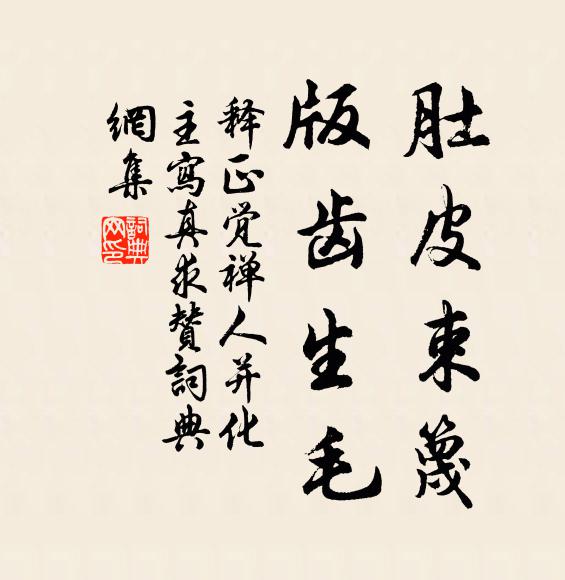 肚皮束蔑
版齿生毛
释正觉禅人并化
主寫真求贊詞典
網集
詞典网印